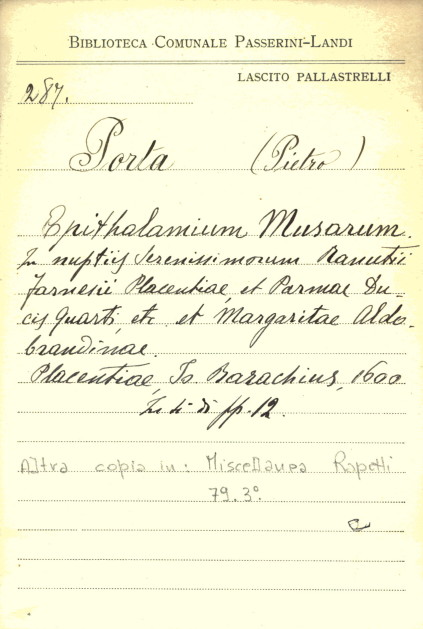 BIBLIOTECA COMUNALE PASSERINI-LANDI
LASCITO PALLASTRELLI
287.
Porta (Pietro)
Epithalamium Musarum.
In nuptijs Serenissimorum Ranutii
Farnesii Placentiae, et Parmae Du-
cis Quarti, etc. et Margaritae Aldo-
brandinae.
Placentiae, Io. Bazachius, 1600
di pp. 12.
Altra copia in: Miscellanea Rapetti
79.3º.